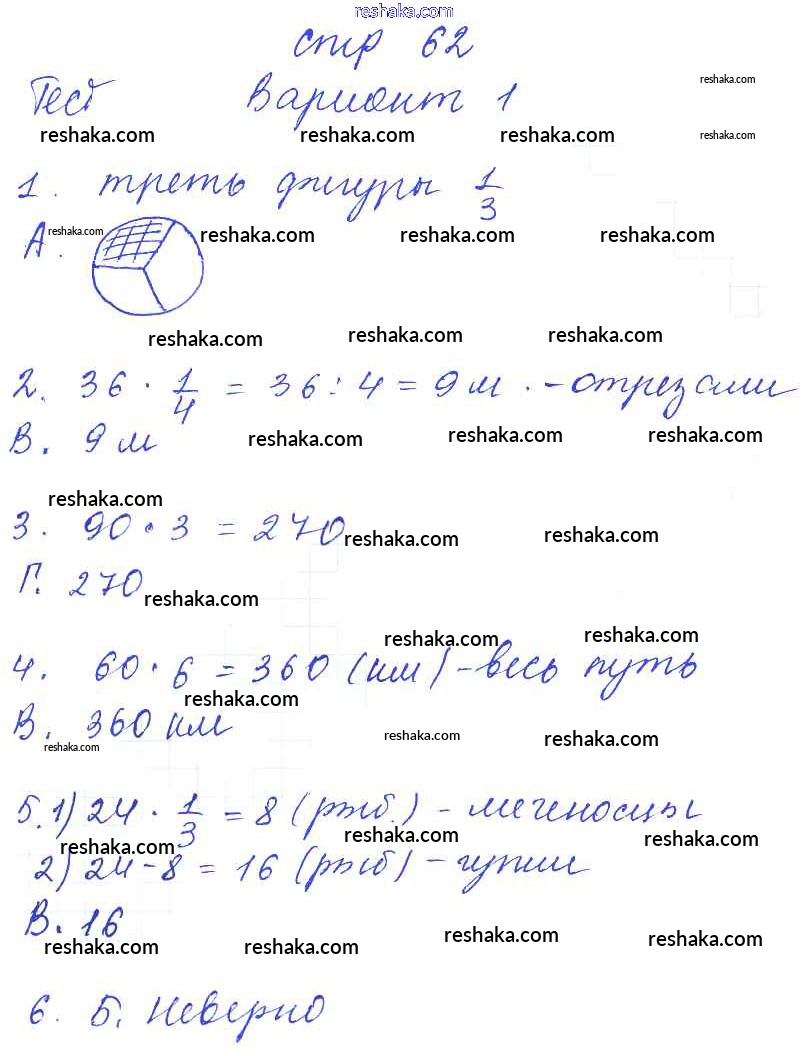 reshaka.com
стр 62
reshaka.com
Тест Вариант 1
reshaka.com reshaka.com reshaka.com reshaka.com
1. треть фигуры 1/3
А. reshaka.com reshaka.com reshaka.com reshaka.com
reshaka.com reshaka.com reshaka.com
2. 36 · 1/4 = 36 : 4 = 9 м. - отрезали
В. 9 м reshaka.com reshaka.com reshaka.com
reshaka.com
3. 90 · 3 = 270 reshaka.com reshaka.com
Г. 270 reshaka.com
reshaka.com reshaka.com
4. 60 · 6 = 360 (км) - весь путь
reshaka.com
В. 360 км reshaka.com reshaka.com
reshaka.com
5. 1) 24 · 1/3 = 8 (рыб.) - меченосцы
reshaka.com reshaka.com reshaka.com
2) 24 - 8 = 16 (рыб) - гуппи
В. 16
reshaka.com reshaka.com reshaka.com reshaka.com
6. Б. Неверно